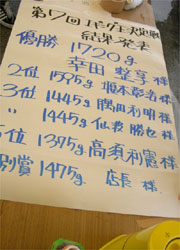 第17回
結果発表
優勝 1720g
幸田 整享 様
2位 1575g 坂本 様
3位 1445g 隅田利明 様
〃 1445g 仙波 勝也 様
5位 1395g 高須利憲 様
別賞 1475g 店長 様